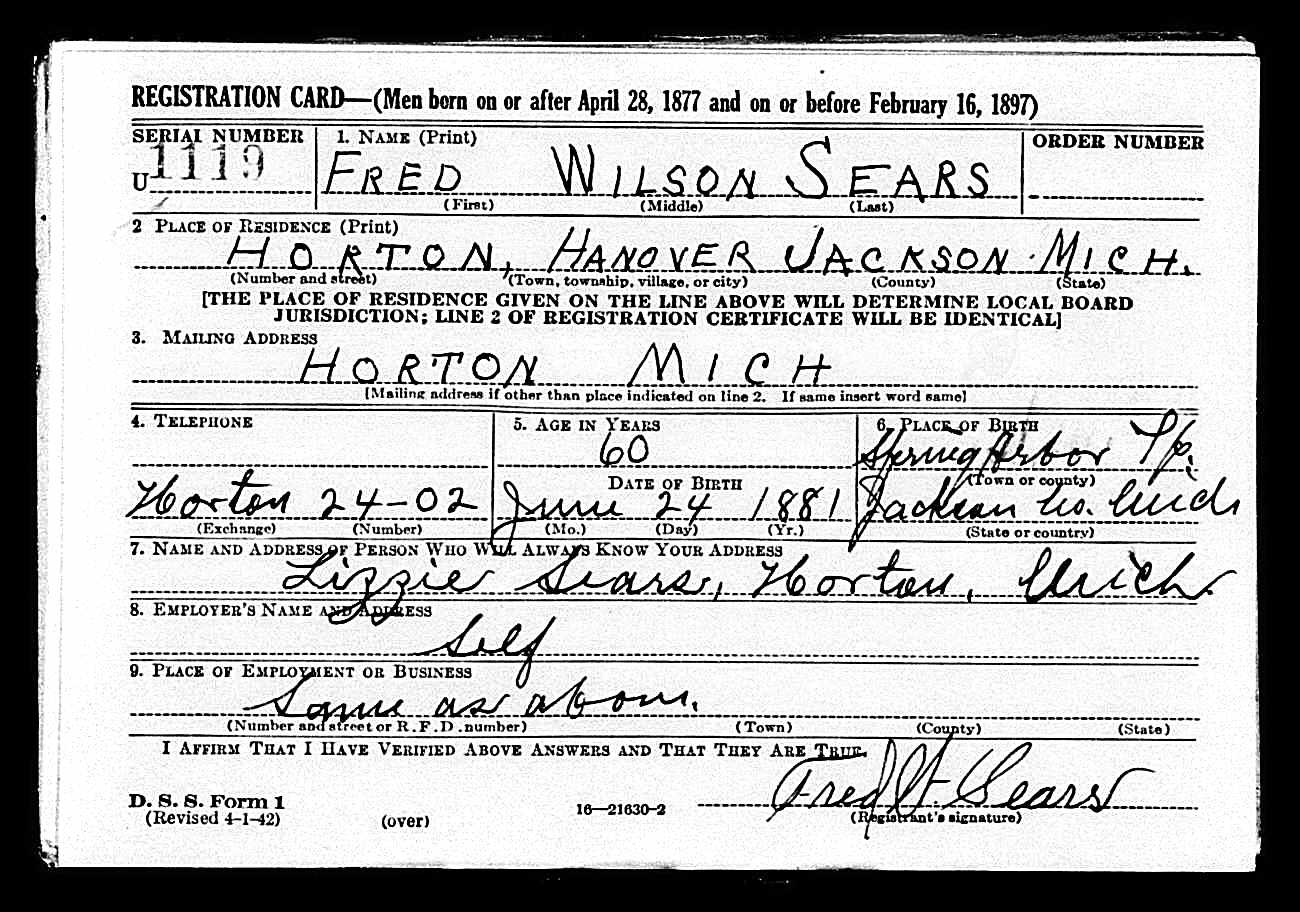 REGISTRATION CARD—(Men born on or after April 28, 1877 and on or before February 16, 1897)
SERIAL NUMBER 1. NAME (Print) ORDER NUMBER
U 1119 FRED WILSON SEARS
(First) (Middle) (Last)
2 PLACE OF RESIDENCE (Print)
HORTON, HANOVER JACKSON MICH.
(Number and street) (Town, township, village, or city) (County) (State)
[THE PLACE OF RESIDENCE GIVEN ON THE LINE ABOVE WILL DETERMINE LOCAL BOARD
JURISDICTION; LINE 2 OF REGISTRATION CERTIFICATE WILL BE IDENTICAL]
3. MAILING ADDRESS
HORTON MICH
[Mailing address if other than place indicated on line 2. If same insert word same]
4. TELEPHONE 5. AGE IN YEARS 6. PLACE OF BIRTH
60 Spring Arbor Tp.
DATE OF BIRTH (Town or county)
Horton 24-02 June 24 1881 Jackson Co. Mich
(Exchange) (Number) (Mo.) (Day) (Yr.) (State or country)
7. NAME AND ADDRESS OF PERSON WHO WILL ALWAYS KNOW YOUR ADDRESS
Lizzie Sears, Horton, Mich.
8. EMPLOYER'S NAME AND ADDRESS
Self
9. PLACE OF EMPLOYMENT OR BUSINESS
Same as above.
(Number and street or R.F.D. number) (Town) (County) (State)
I AFFIRM THAT I HAVE VERIFIED ABOVE ANSWERS AND THAT THEY ARE TRUE.
Fred W. Sears
D. S. S. Form 1
(Revised 4-1-42) (over) 16—21630-2 (Registrant's signature)